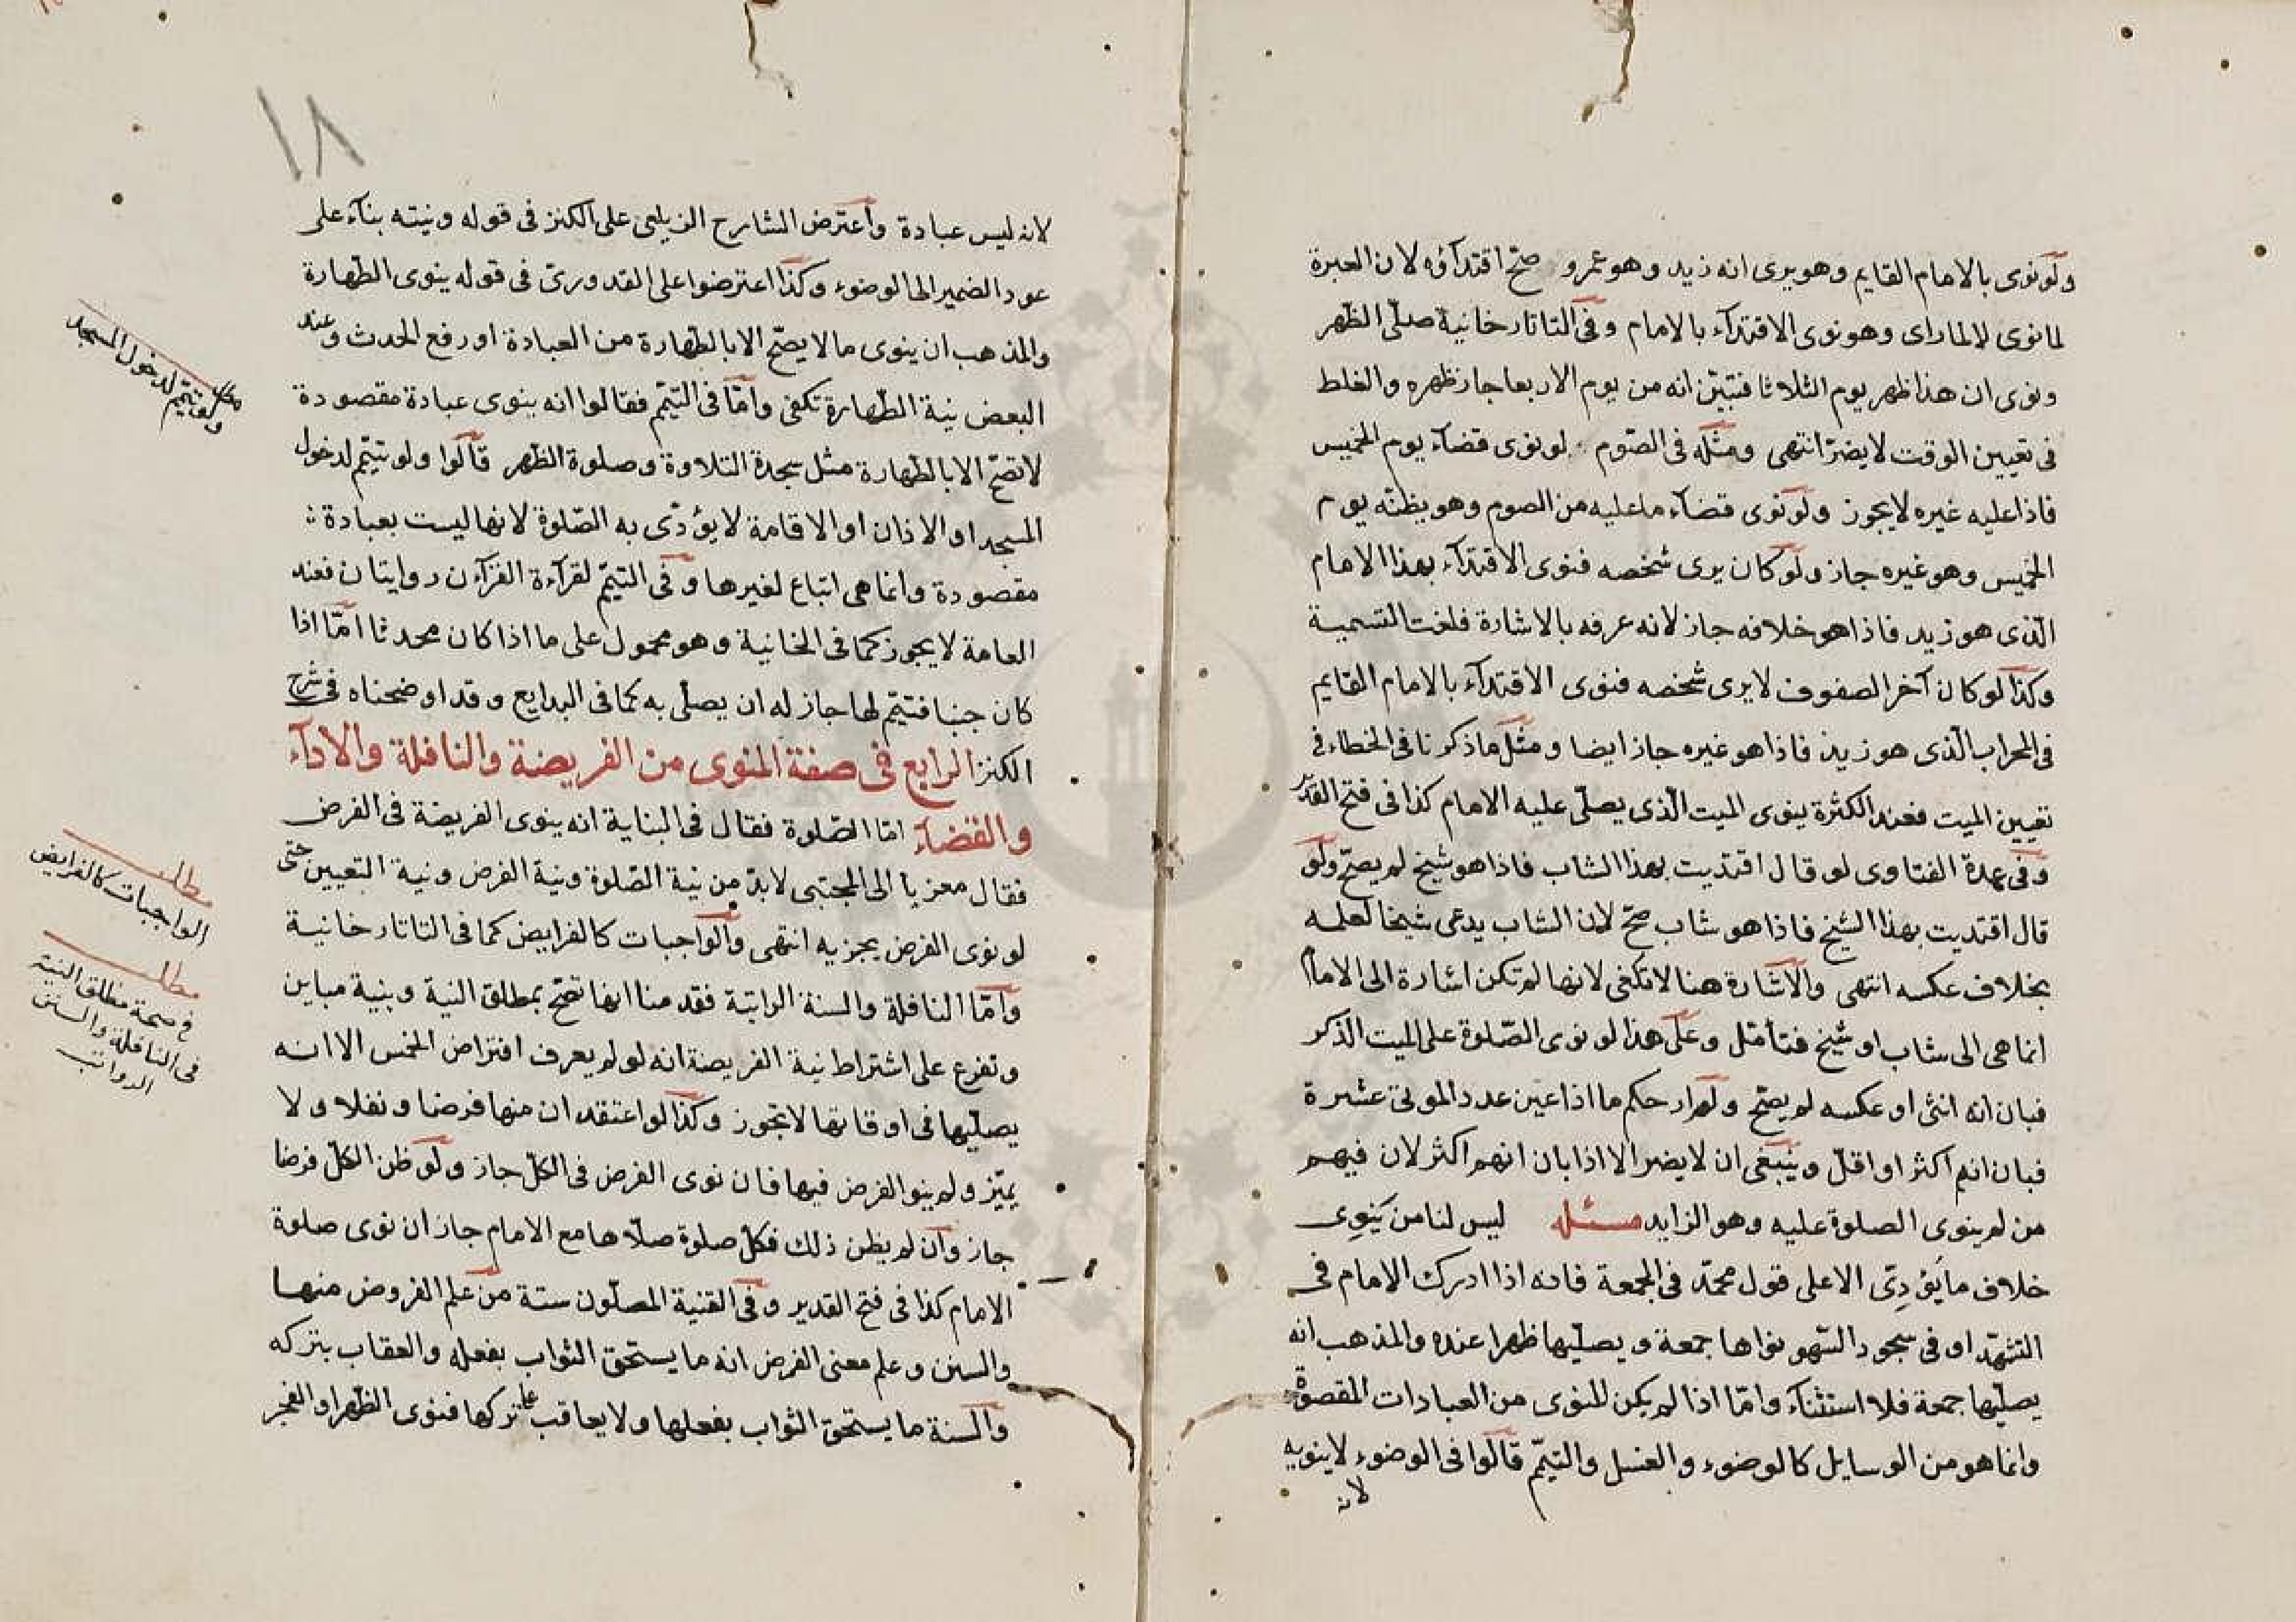 ولو نوى بالامام القايم وهو يرى انه زيد وهو عمرو صح اقتدآؤه لان العبرة
لما نوى لا لما راى وهو نوى الاقتدآء بالامام وفى التاتارخانية صلّى الظهر
ونوى ان هذا ظهر يوم الثلاثا فتبيّن انه من يوم الاربعا جاز ظهره والغلط
فى تعيين الوقت لا يضرّ انتهى ومثله فى الصّوم لو نوى قضآء يوم الخميس
فاذا عليه غيره لا يجوز ولو نوى قضآء ما عليه من الصوم وهو يظنّه يوم
الخميس وهو غيره جاز ولو كان يرى شخصه فنوى الاقتدآء بهذا الامام
الّذى هو زيد فاذا هو خلافه جاز لانه عرفه بالاشارة فلغت التسمية
وكذا لو كان آخر الصفوف لا يرى شخصه فنوى الاقتدآء بالامام القايم
فى المحراب الّذى هو زيد فاذا هو غيره جاز ايضا ومثل ما ذكرنا فى الخطاء فى
تعيين الميت فعند الكثرة ينوى الميت الّذى يصلّى عليه الامام كذا فى فتح القدير
وفى عمدة الفتاوى لو قال اقتديت بهذا الشاب فاذا هو شيخ لم يصحّ ولو
قال اقتديت بهذا الشيخ فاذا هو شاب صحّ لان الشاب يدعى شيخا لعلمه
بخلاف عكسه انتهى والاشارة هنا لا تكفى لانها لم تكن اشارة الى الامام
انما هى الى شاب او شيخ فتأمّل وعلى هذا لو نوى الصّلوة على الميت الذكر
فبان انه انثى او عكسه لم يصحّ ولم ار حكم ما اذا عين عدد الموتى عشرة
فبان انهم اكثر او اقلّ وينبغى ان لا يضر الا اذا بان انهم اكثر لان فيهم
من لم ينوى الصلوة عليه وهو الزايد مسئله ليس لنا من ينوى
خلاف ما يؤدى الا على قول محمّد فى الجمعة فانه اذا ادرك الامام فى
التشهّد او فى سجود السّهو نواها جمعة ويصلّيها ظهرا عنده والمذهب انه
يصلّيها جمعة فلا استثنآء وامّا اذا لم يكن المنوى من العبادات المقصودة
وانما هو من الوسايل كالوضوء والغسل والتيمّم قالوا فى الوضوء لا ينويه
لانه
١٨
لانه ليس عبادة واعترض الشارح الزيلعى على الكنز فى قوله ونيته بنآء على
عود الضمير الى الوضوء وكذا اعترضوا على القدورىّ فى قوله ينوى الطّهارة
والمذهب ان ينوى ما لا يصحّ الا بالطّهارة من العبادة او رفع الحدث وعند
البعض نية الطّهارة تكفى وامّا فى التيمّم فقالوا انه ينوى عبادة مقصودة
لا تصحّ الا بالطّهارة مثل سجدة التلاوة وصلوة الظهر قالوا ولو تيمّم لدخول
المسجد او الاذان او الاقامة لا يؤدّى به الصّلوة لانها ليست بعبادة
مقصودة وانما هى اتباع لغيرها وفى التيمّم لقرآءة القرآءن روايتان فعند
العامة لا يجوز كما فى الخانية وهو محمول على ما اذا كان محدثا امّا اذا
كان جنبا فتيمّم لها جاز له ان يصلّى به كما فى البدايع وقد اوضحناه فى شرح
الكنز الرابع فى صفة المنوى من الفريضة والنافلة والادآء
والقضآء امّا الصّلوة فقال فى البناية انه ينوى الفريضة فى الفرض
فقال معزيا الى المجتبى لا بدّ من نية الصّلوة ونية الفرض ونية التعيين حتى
لو نوى الفرض يجزيه انتهى والواجبات كالفرايض كما فى التاتارخانية
وامّا النافلة والسنة الراتبة فقدمنا انها تصحّ بمطلق النية وبنية مباين
وتفرع على اشتراط نية الفريضة انه لو لم يعرف افتراض الخمس الا انه
يصلّيها فى اوقاتها لا تجوز وكذا لو اعتقد ان منها فرضا ونفلا ولا
يميّز ولم ينو الفرض فيها فان نوى الفرض فى الكلّ جاز ولو ظن الكلّ فرضا
جاز وان لم يظن ذلك فكلّ صلوة صلّاها مع الامام جاز ان نوى صلوة
الامام كذا فى فتح القدير وفى القنية المصلّون ستة من علم الفروض منها
والسنن وعلم معنى الفرض انه ما يستحق الثواب بفعله والعقاب بتركه
والسنة ما يستحق الثواب بفعلها ولا يعاقب على تركها فنوى الظّهر او الفجر
ولو تيمّم لدخول المسجد
مطلب
الواجبات كالفرايض
مطلب
فى صحة مطلق النية
فى النافلة والسنن
الرواتب